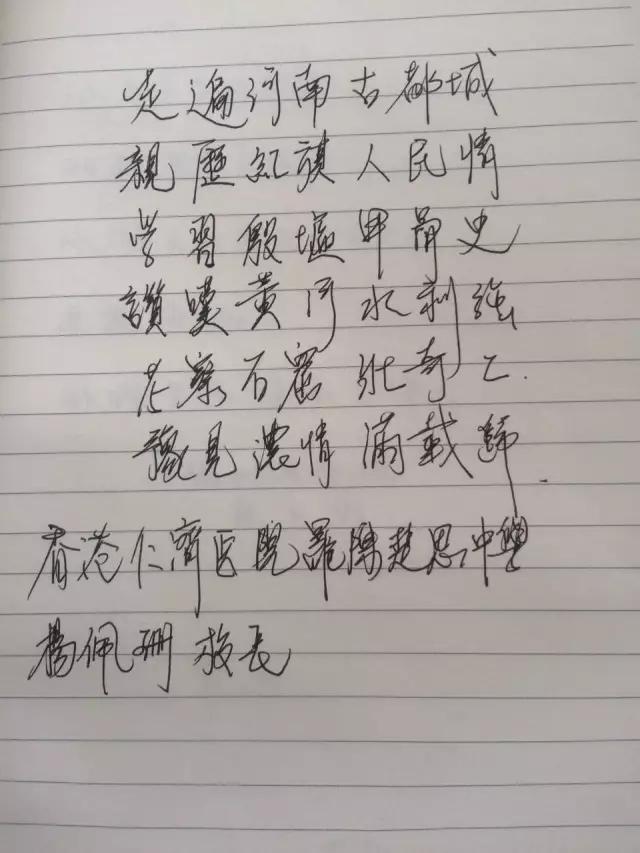 走遍河南古都城
親歷紅旗人民情
学習殷墟甲骨史
讚嘆黄河水利強
石窟壯奇工.
豫見濃情滿載歸.
香港仁濟医院羅陳楚思中學
楊佩珊校長